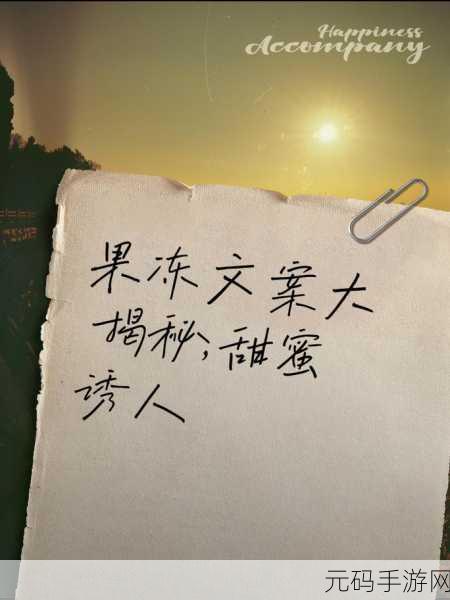 Happiness
Accompany
果冻文案大
揭秘;甜蜜
诱人
元码手游网